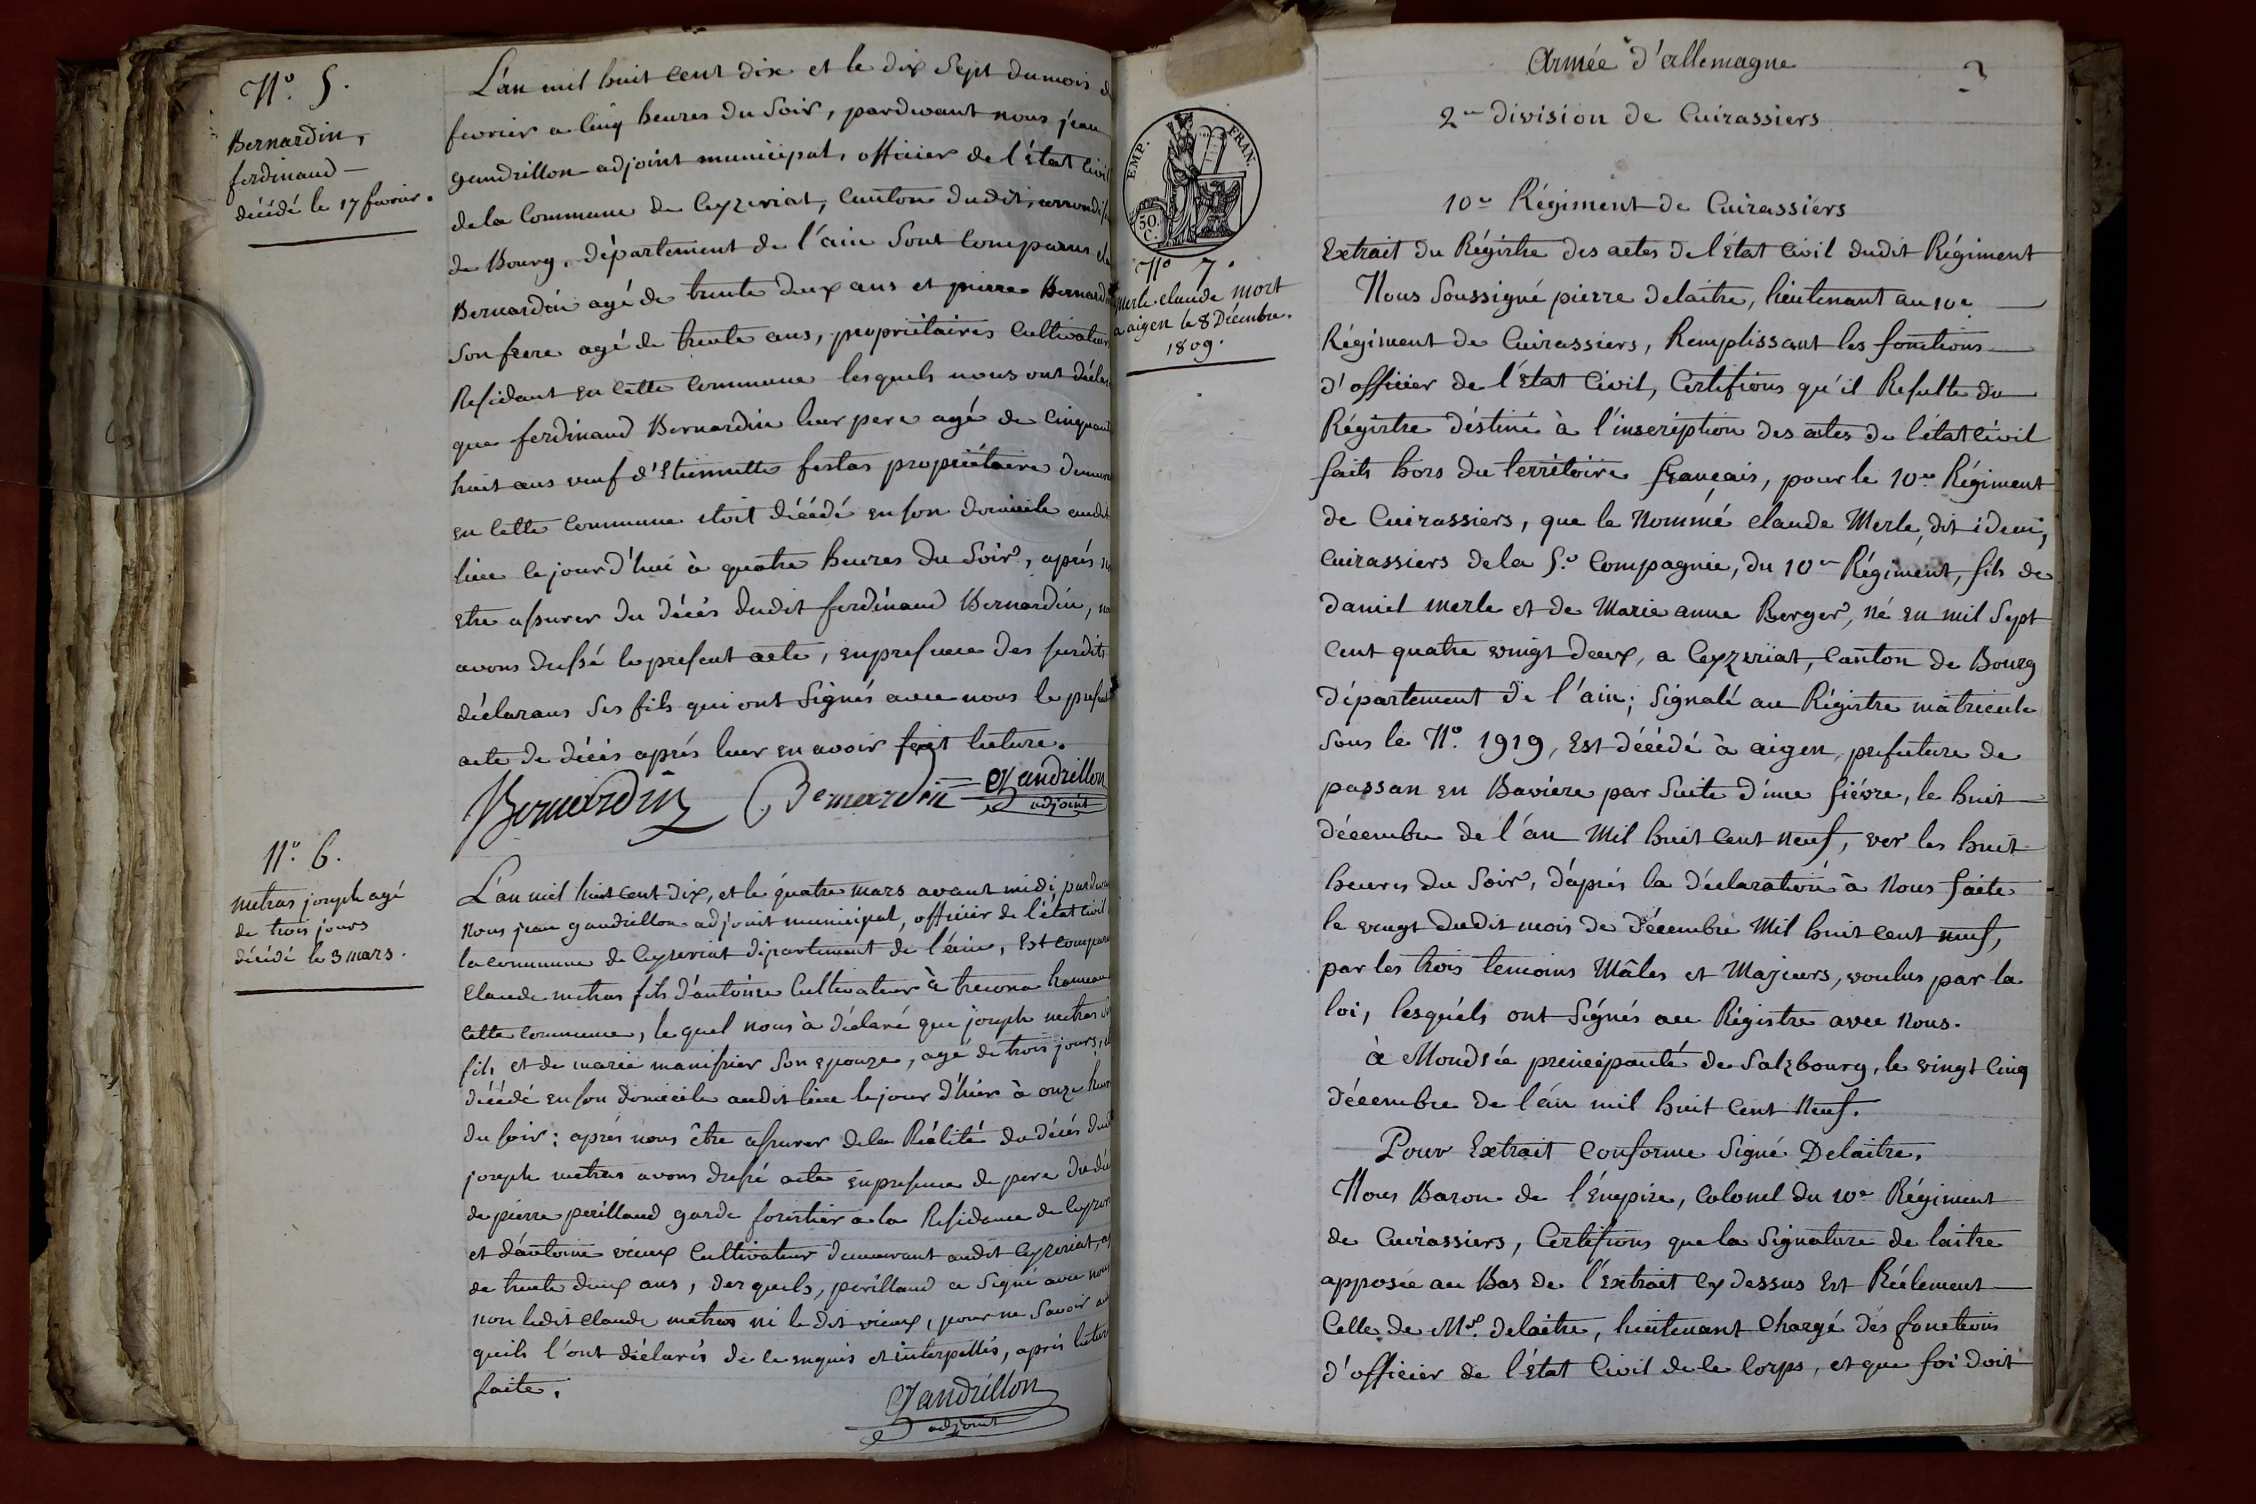 N.º 5.
Bernardin,
ferdinand —
décédé le 17 fevrier.
L'an mil huit cent dix et le dix Sept du mois d
fevrier a cinq heures du Soir, pardevant nous jean
gandrillon adjoint municipal, officier de l'état Civil
de la Commune de Ceyzeriat, Canton dudit, arrondis
de Bourg, département de l'ain Sont Comparus
Bernardin agé de trente deux ans et pierre Bernardin
Son frere agé de trente ans, propriétaires Cultivateurs
Residant en Cette Commune lesquels nous ont déclaré
que ferdinand Bernardin leur pere agé de Cinquante
huit ans veuf d'Etiennette festas propriétaire demeurant
en Cette Commune etoit décédé en son domicile audit
lieu cejourd'hui à quatre heures du Soir, aprés n
etre assurer du décés dudit ferdinand Bernardin, n
avons dressé le present acte, en presence des susdits
déclarans Ses fils qui ont Signés avec nous le present
acte de décés aprés leur en avoir fait lecture.
Bernardin Bernardin Gandrillon
adjoint
N.º 6.
metras joseph agé
de trois jours
décédé le 3 mars.
L'an mil huit cent dix, et le quatre mars avant midi, pardevant
Nous jean gandrillon adjoint municipal, officier de l'état Civil
la commune de Ceyzeriat département de l'ain, Est comparu
Claude metras fils d'antoine Cultivateur à treconna hameau
Cette Commune, le quel nous à déclaré que joseph metras
fils et de marie manissier Son epouze, agé de trois jours,
décédé en son domicile audit lieu le jour d'hier à onze heures
du soir; aprés nous être assurer de la Réalité du décés dudit
joseph metras avons dressé acte en presence du pere du
de pierre perilland garde forestier a la Residence de Ceyzer
et d'antoine vieux Cultivateur demeurant audit Ceyzeriat,
de trente deux ans, desquels, perilland a Signé avec nous
non ledit Claude metras ni le dit vieux, pour ne Savoir
quils l'ont déclarés de ce enquis et interpellés, aprés lecture
faite.
Gandrillon
adjoint
EMP. FRAN.
50. C.
N.º 7.
Merle claude mort
a aigen le 8 Décembre.
1809.
Armée d'allemagne
2.e division de Cuirassiers
10.e Régiment de Cuirassiers
Extrait du Régistre des actes de l'état Civil dudit Régiment
Nous Soussigné pierre delaitre, lieutenant au 10.e
Régiment de Cuirassiers, Remplissant les fonctions
d'officier de l'état Civil, Certifions qu'il Resulte du
Régistre déstiné à l'inscription des actes de l'état Civil
faits hors du territoire français, pour le 10.e Régiment
de Cuirassiers, que le Nommé claude Merle, dit idem,
cuirassiers de la 5.e Compagnie, du 10.e Régiment, fils de
daniel merle et de Marie anne Berger, né en mil Sept
Cent quatre vingt deux, a Ceyzeriat, Canton de Bourg
département de l'ain; Signalé au Régistre matricule
Sous le N.º 1919, Est décédé à aigen, prefecture de
passau en Baviere par Suite d'une fiévre, le huit
décembre de l'an Mil huit Cent Neuf, ver les huit
heures du Soir, d'aprés la déclaration à Nous faite
le vingt dudit mois de décembre Mil huit cent neuf,
par les trois temoins Mâles et Majeurs, voulus par la
loi, lesquéls ont Signés au Régistre avec Nous.
à Mondsée principauté de Salzbourg, le vingt Cinq
décembre de l'an mil huit Cent Neuf.
Pour Extrait Conforme Signé Delaitre.
Nous Baron de l'émpire, Colonel du 10.e Régiment
de Cuirassiers, Certifions que la Signature de laitre
apposée au Bas de l'Extrait Cy dessus Est Réelement
Celle de M.r delaitre, lieutenant Chargé dés fonctions
d'officier de l'état Civil de ce Corps, et que foi doit